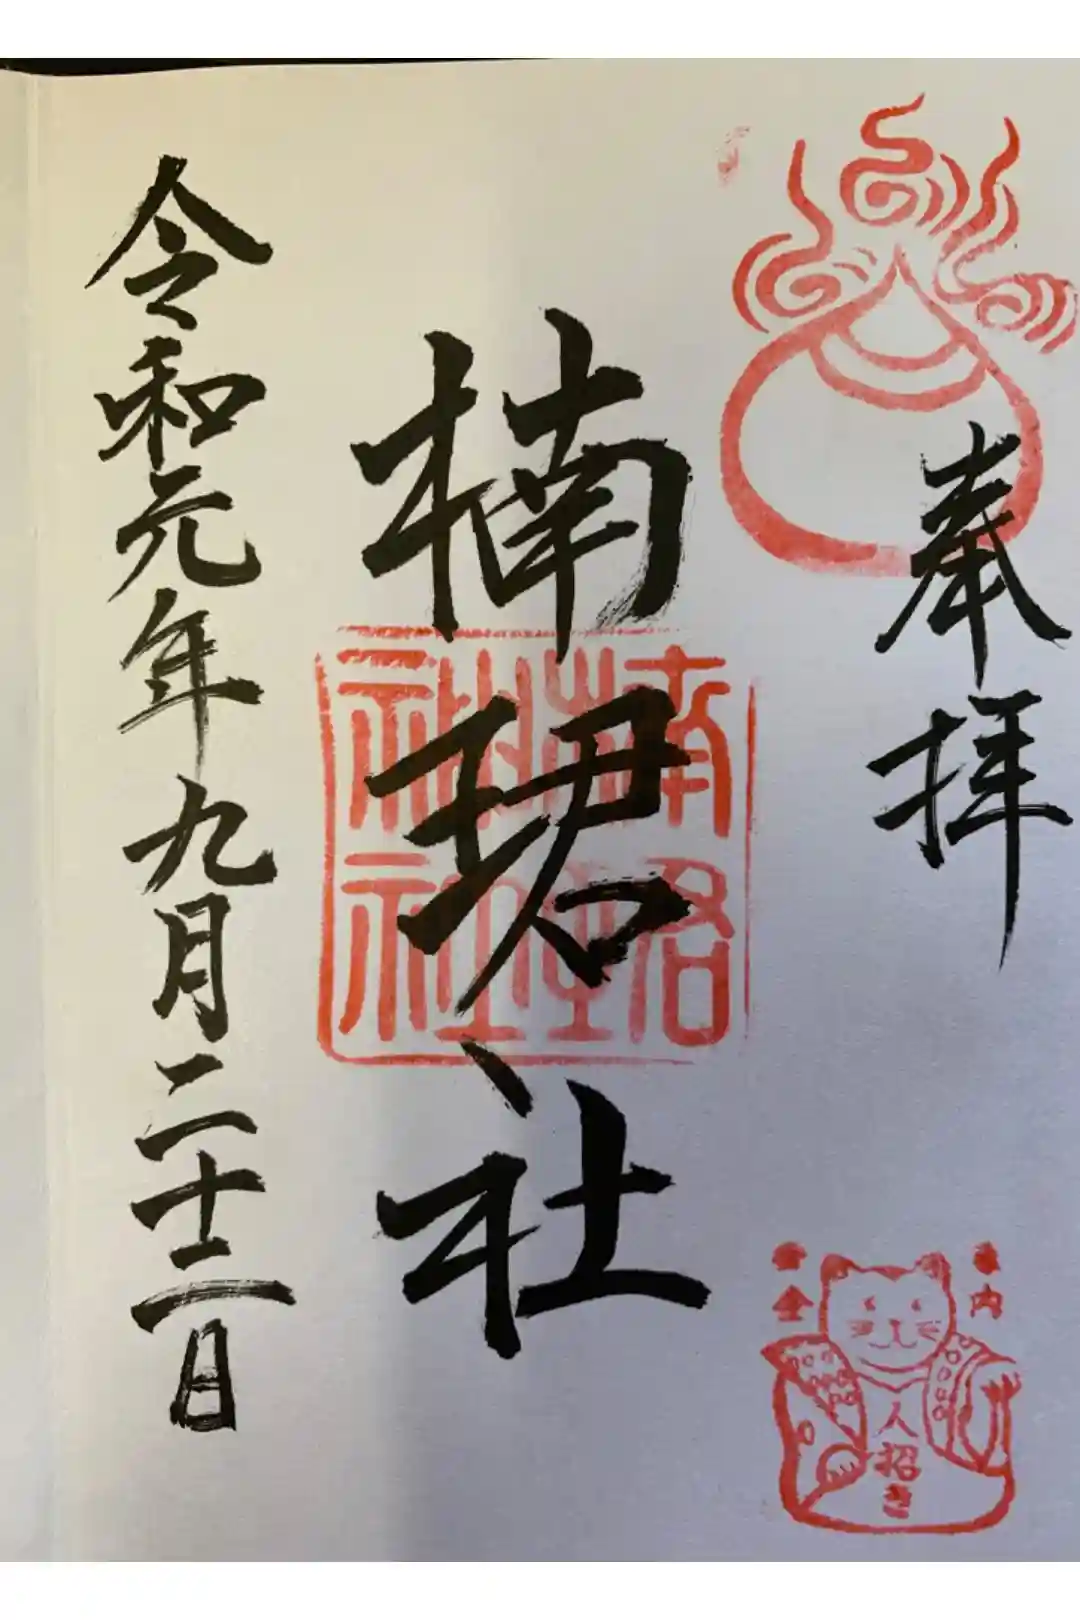 奉拝
楠珺社
令和元年九月二十二日
楠珺
神社
家内
安全
人招き